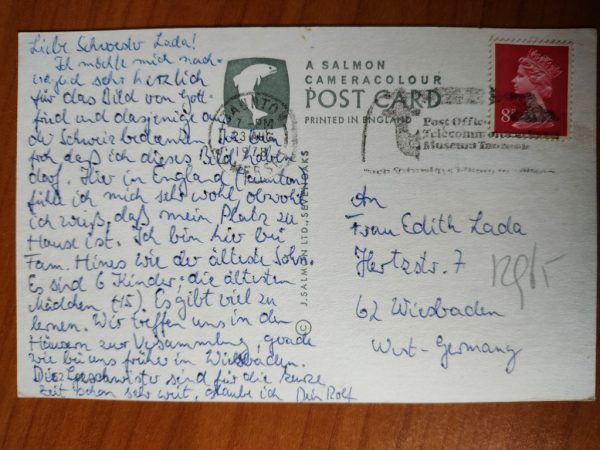 Liebe Schwester Lada!
Ich möchte mich nach-
träglich sehr herzlich
für das Bild von Gott-
fried und dasjenige aus
der Schweiz bedanken. Ich bin
froh daß ich dieses Bild haben
darf. Hier in England (Taunton)
fühle ich mich sehr wohl, obwohl
ich weiß, daß mein Platz zu
Hause ist. Ich bin hier bei
Fam. Hines wie der älteste Sohn.
Es sind 6 Kinder; die ältesten
Mädchen (15). Es gibt viel zu
lernen. Wir treffen uns in den
Häusern zur Versammlung, gerade
wie bei uns früher in Wiesbaden.
Die Geschwister sind für die kurze
Zeit schon sehr weit, glaube ich Dein Rolf
A SALMON
CAMERACOLOUR
POST CARD
PRINTED IN ENGLAND
© J. SALMON LTD., SEVENOAKS
TAUNTON
7 - PM
23 AUG
197
SOMERSET
Post Office
Telecommunications
Museum Taunton
8P
An
Frau Edith Lada
Hertzstr. 7
62 Wiesbaden
West-Germany